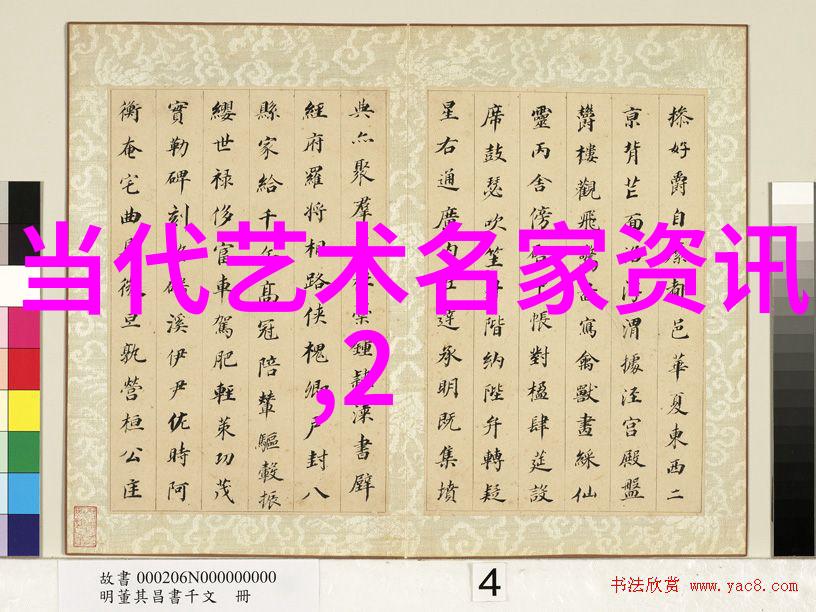 操好爵自縻都邑華夏東西二
京背芒面洛浮渭據涇宮殿盤
鬱樓觀飛驚圖寫禽獸畫綵仙
靈丙舍傍啓甲帳對楹肆筵設
席鼓瑟吹笙升階納陛弁轉疑
星右通廣內左達承明既集墳
典亦聚羣英杜稾鍾隸漆書壁
經府羅將相路俠槐卿戶封八
縣家給千兵高冠陪輦驅轂振
纓世禄侈富車駕肥輕策功茂
實勒碑刻銘磻溪伊尹佐時阿
衡奄宅曲阜微旦孰營桓公匡
当代艺术名家资讯
,2
故書 000206N000000000
明董其昌書千文 冊
4
书法欣赏 www.yac8.com